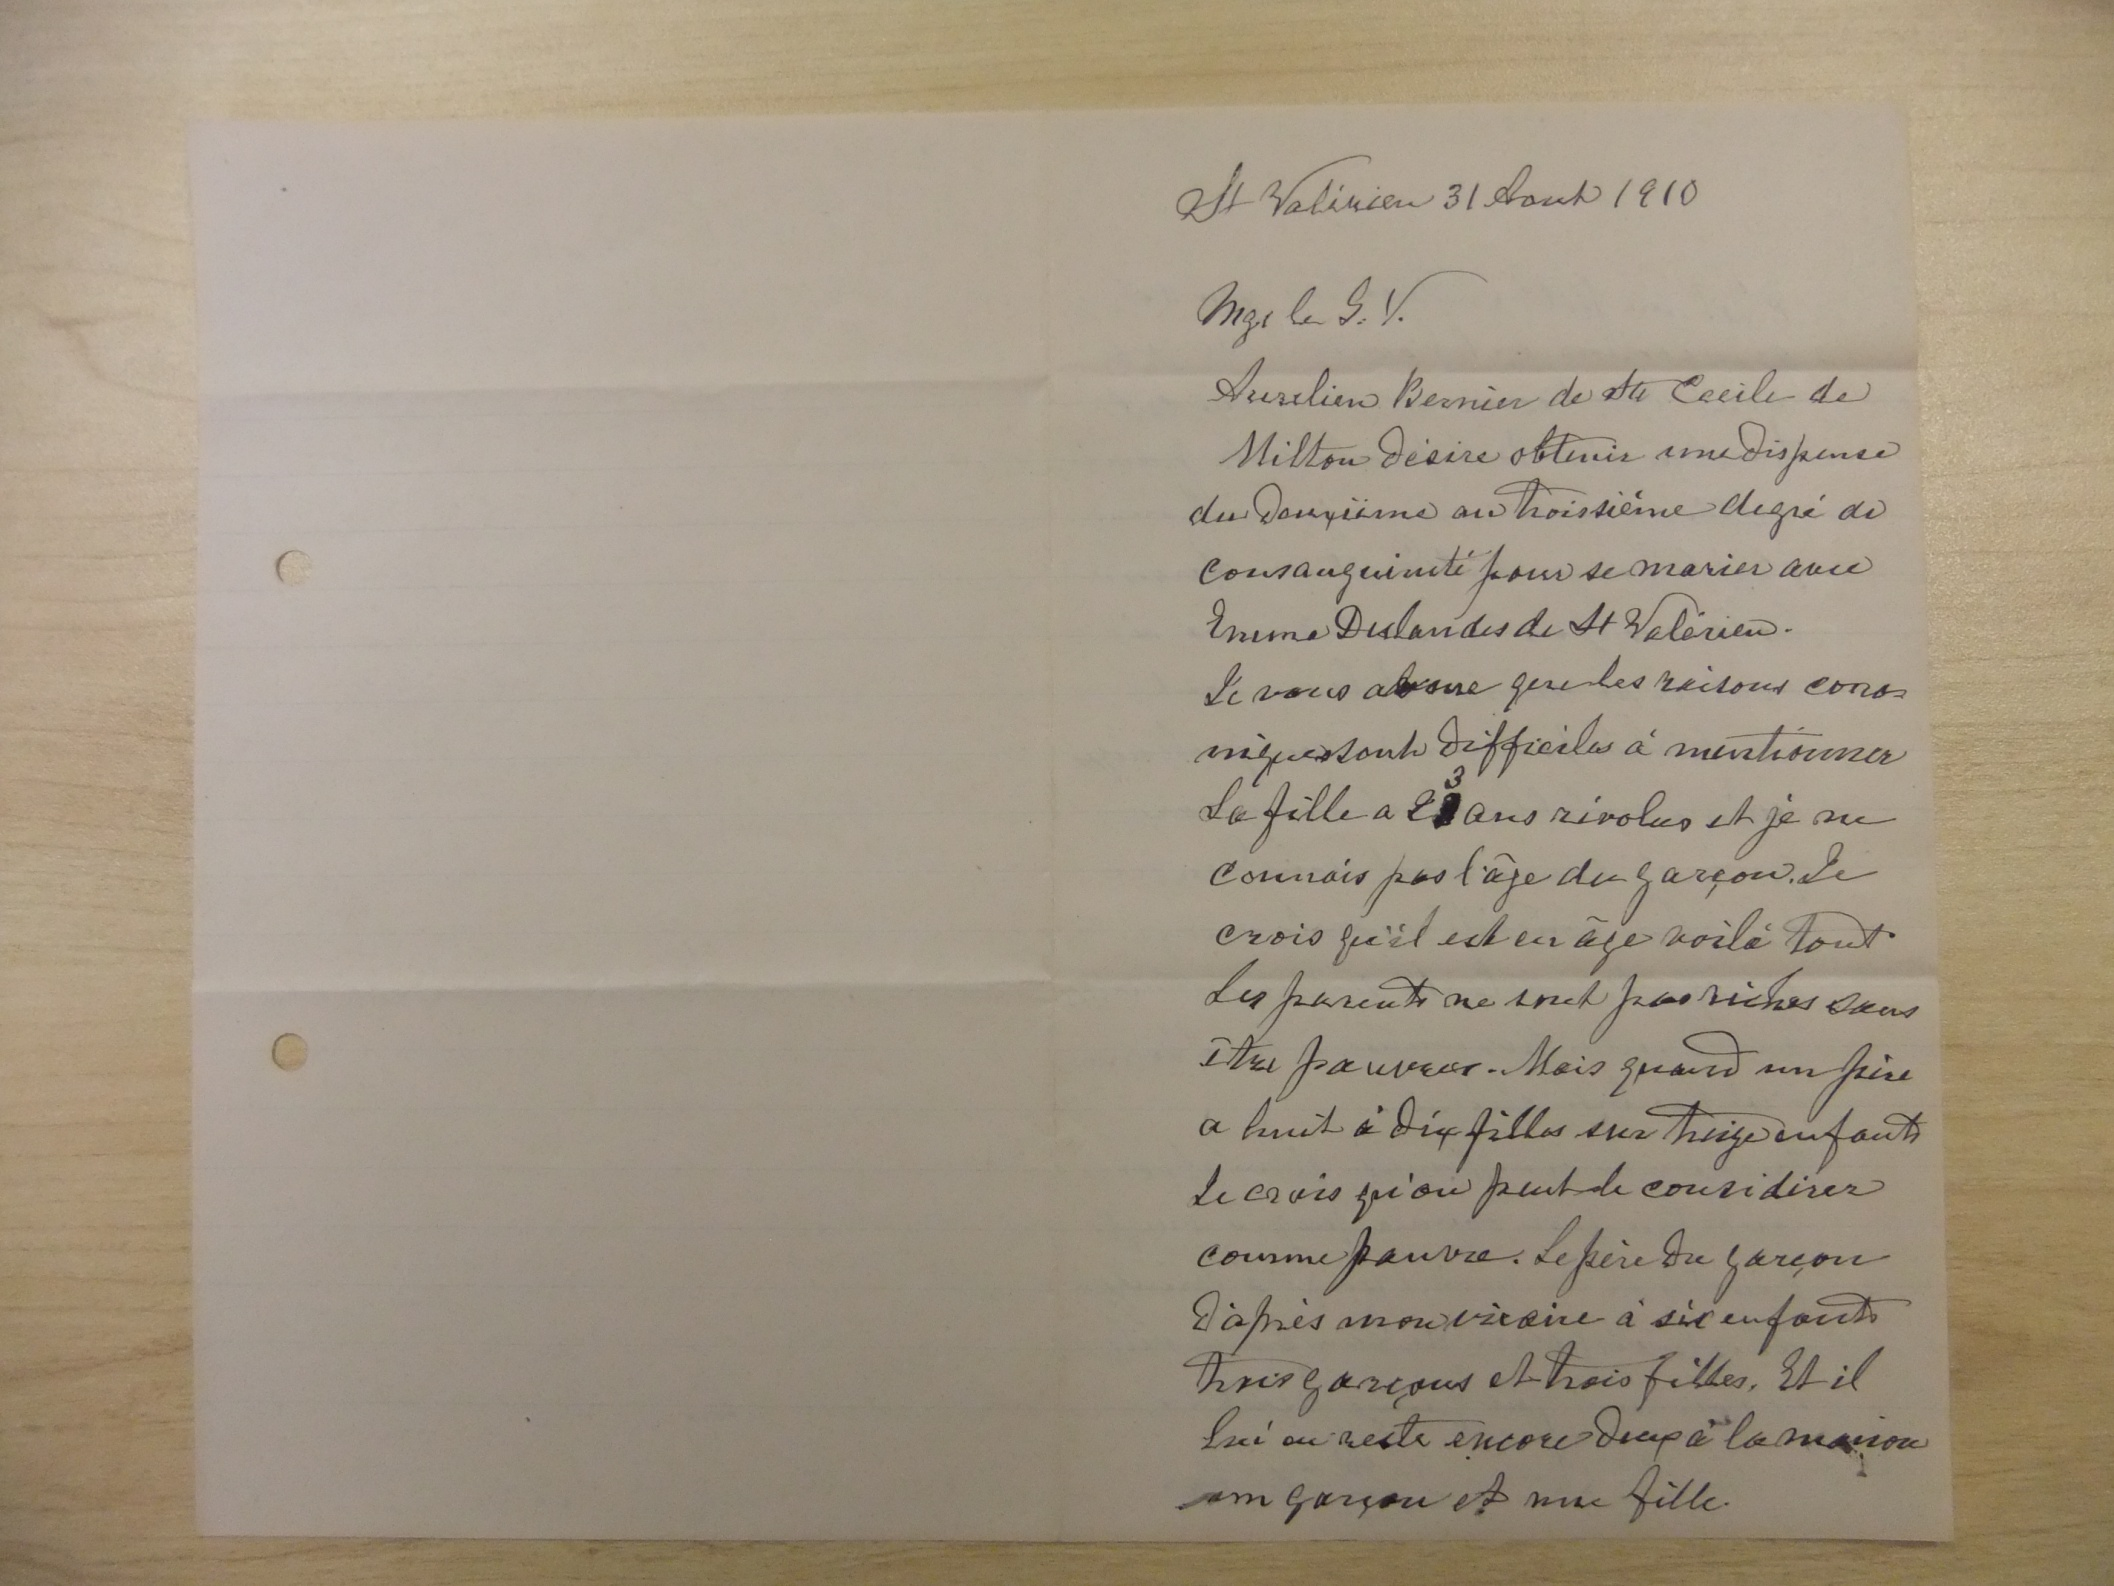 St Valérien 31 Aout 1910
Mgr le G. V.
Aurelien Bernier de Ste Cecile de
Milton désire obtenir une dispense
du deuxième au troissième degré de
consanguinité pour se marier avec
Emma Deslandes de St Valérien.
Je vous avoue que les raisons cano=
niques sont difficiles à mentionner
La fille a 23 ans révolus et je ne
connais pas l'âge du garçon. Je
crois qu'il est en âge voilà tout
Les parents ne sont pas riches sans
être pauvres. Mais quand un père
a huit à dix filles sur treize enfants
Je crois qu'on peut le considérer
comme pauvre. Le père du garçon
d'après mon vicaire à six enfants
trois garçons et trois filles. Et il
lui en reste encore deux à la maison
un garçon et une fille.